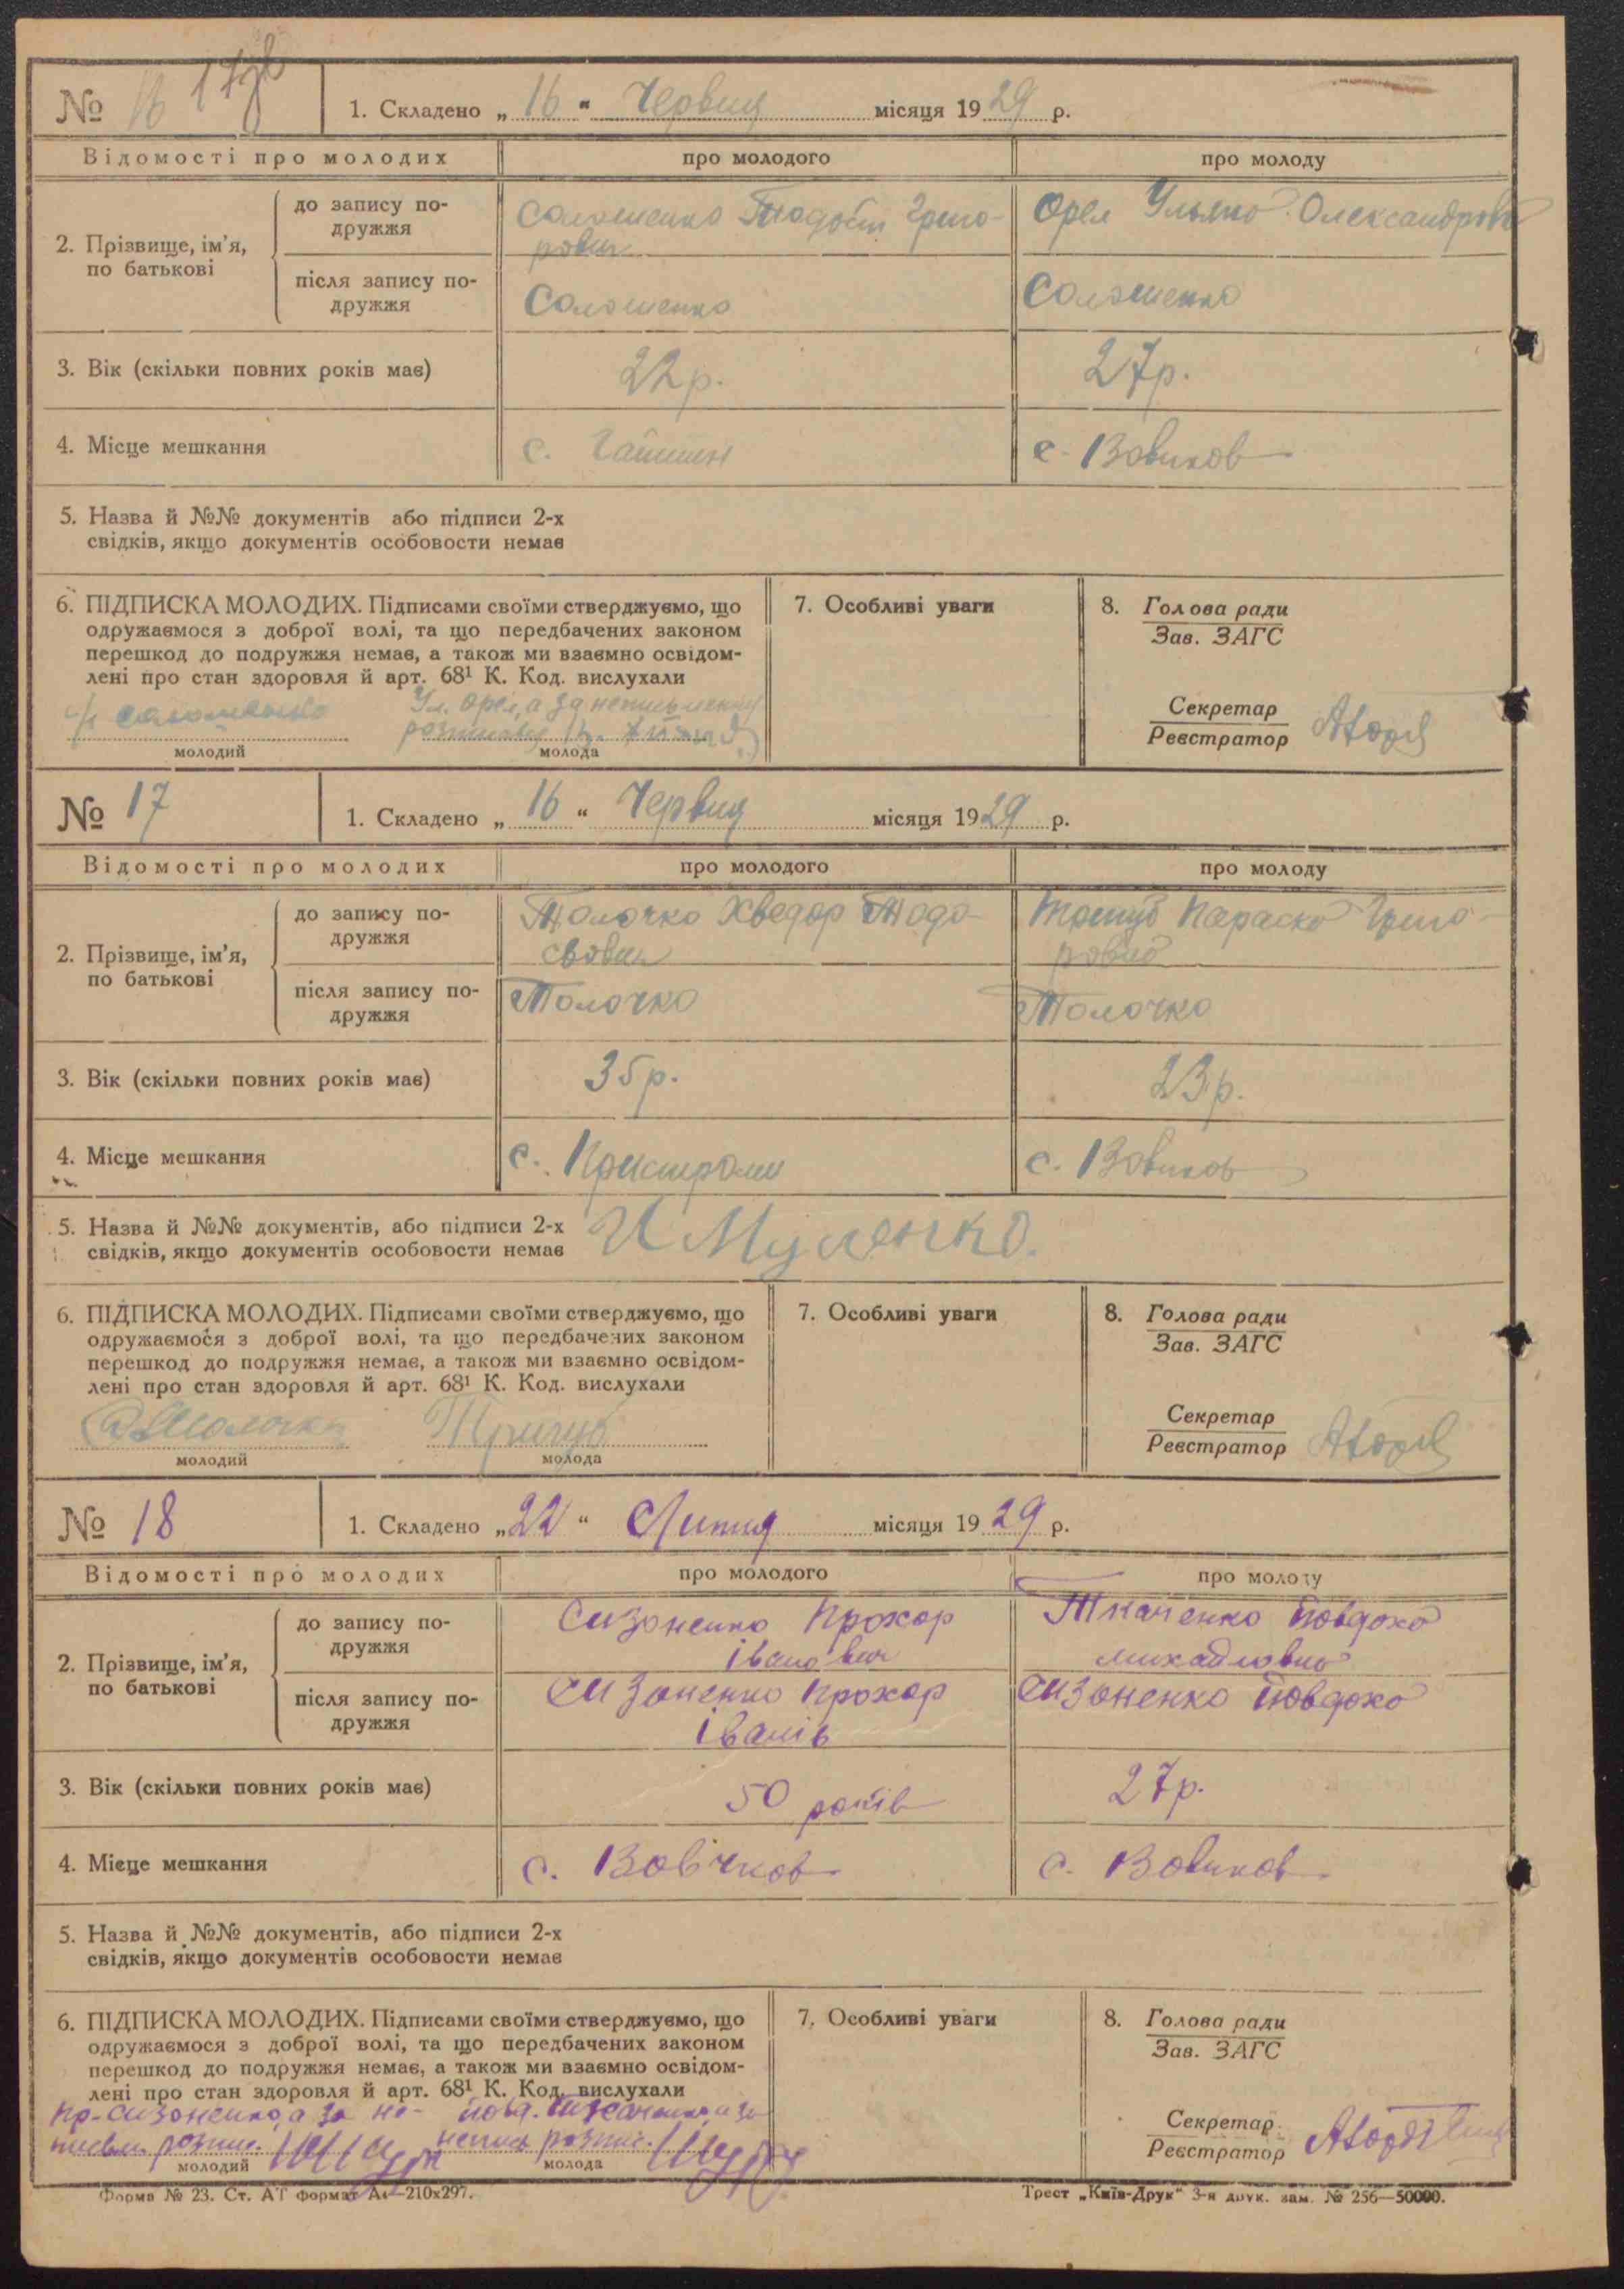 № 16 17
1. Складено „ 16 “ Червця місяця 1929 р.
Відомості про молодих
про молодого
про молоду
2. Прізвище, ім’я, по батькові
до запису по-
дружжя
Соломенко Григо-
рович
Орел Ульяна Олександровна
після запису по-
дружжя
Соломенко
Соломенко
3. Вік (скільки повних років має)
22 р.
27 р.
4. Місце мешкання
с.
с. Вовчков
5. Назва й №№ документів або підписи 2-х
свідків, якщо документів особовости немає
6. ПІДПИСКА МОЛОДИХ. Підписами своїми стверджуємо, що
одружаємося з доброї волі, та що передбачених законом
перешкод до подружжя немає, а також ми взаємно освідом-
лені про стан здоровля й арт. 68¹ К. Код. вислухали
Ул. Орел, а за неписьменну
молодий
молода
7. Особливі уваги
8. Голова ради
Зав. ЗАГС
Секретар
Реєстратор
№ 17
1. Складено „ 16 “ Червця місяця 1929 р.
Відомості про молодих
про молодого
про молоду
2. Прізвище, ім’я, по батькові
до запису по-
дружжя
Толочко Хведор Тодо-
сьович
Тригуб Параска Григо-
ровна
після запису по-
дружжя
Толочко
Толочко
3. Вік (скільки повних років має)
35 р.
23 р.
4. Місце мешкання
с. Пристроми
с. Вовчков
5. Назва й №№ документів, або підписи 2-х
свідків, якщо документів особовости немає
И Муленко.
6. ПІДПИСКА МОЛОДИХ. Підписами своїми стверджуємо, що
одружаємося з доброї волі, та що передбачених законом
перешкод до подружжя немає, а також ми взаємно освідом-
лені про стан здоровля й арт. 68¹ К. Код. вислухали
Толочко
Тригуб
молодий
молода
7. Особливі уваги
8. Голова ради
Зав. ЗАГС
Секретар
Реєстратор
№ 18
1. Складено „ 22 “ Липня місяця 1929 р.
Відомості про молодих
про молодого
про молоду
2. Прізвище, ім’я, по батькові
до запису по-
дружжя
Сизоненко Прохор
Іванович
Ткаченко Йовдоха
Михайловна
після запису по-
дружжя
Сизоненко Прохор
Іванів
Сизоненко Йовдоха
3. Вік (скільки повних років має)
50 років
27 р.
4. Місце мешкання
с. Вовічков
с. Вовчков
5. Назва й №№ документів, або підписи 2-х
свідків, якщо документів особовости немає
6. ПІДПИСКА МОЛОДИХ. Підписами своїми стверджуємо, що
одружаємося з доброї волі, та що передбачених законом
перешкод до подружжя немає, а також ми взаємно освідом-
лені про стан здоровля й арт. 68¹ К. Код. вислухали
Пр. Сизоненко, а за не-
письм. розпис.
Йовд. а за
непись розпис.
молодий
молода
7. Особливі уваги
8. Голова ради
Зав. ЗАГС
Секретар
Реєстратор
Форма № 23. Ст. АТ формат А4—210х297.
Трест „Київ-Друк“ 3-я друк. зам. № 256—50000.